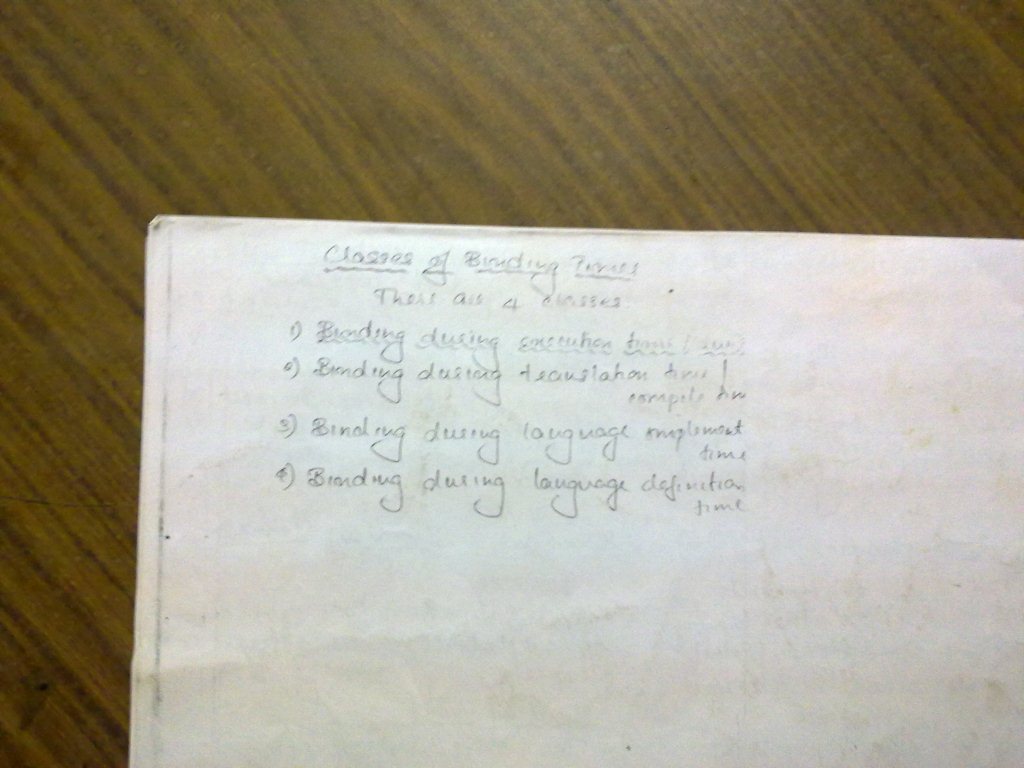 Classes of Binding Times
There are 4 classes
1) Binding during execution time /
2) Binding during translation time /
compile tim
3) Binding during language implement
time
4) Binding during language definition
time